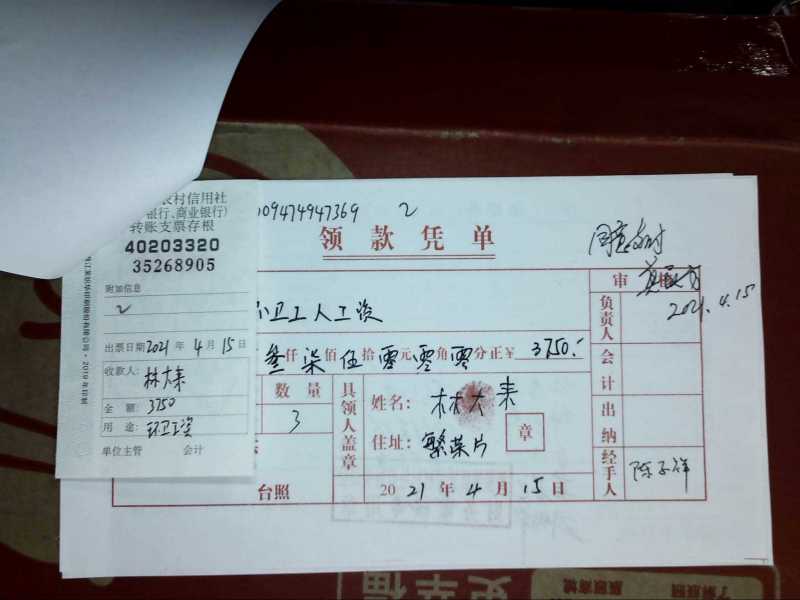 农村信用社
银行、商业银行)
转账支票存根
40203320
35268905
附加信息
2
出票日期 2021 年 4 月 15 日
收款人:
林大来
金 额: 3750
用 途: 环卫工资
单位主管 会计
009474947369 2
领款凭单
同意支付
2021.4.15
环卫工人工资
叁仟柒佰伍拾零元零角零分正¥ 3750.-
数量
3
具领人盖章
姓名: 林大来
住址: 繁荣片
章
台照
2021 年 4 月 15 日
审
负责人
会计
出纳
经手人
陈子祥
史幸福